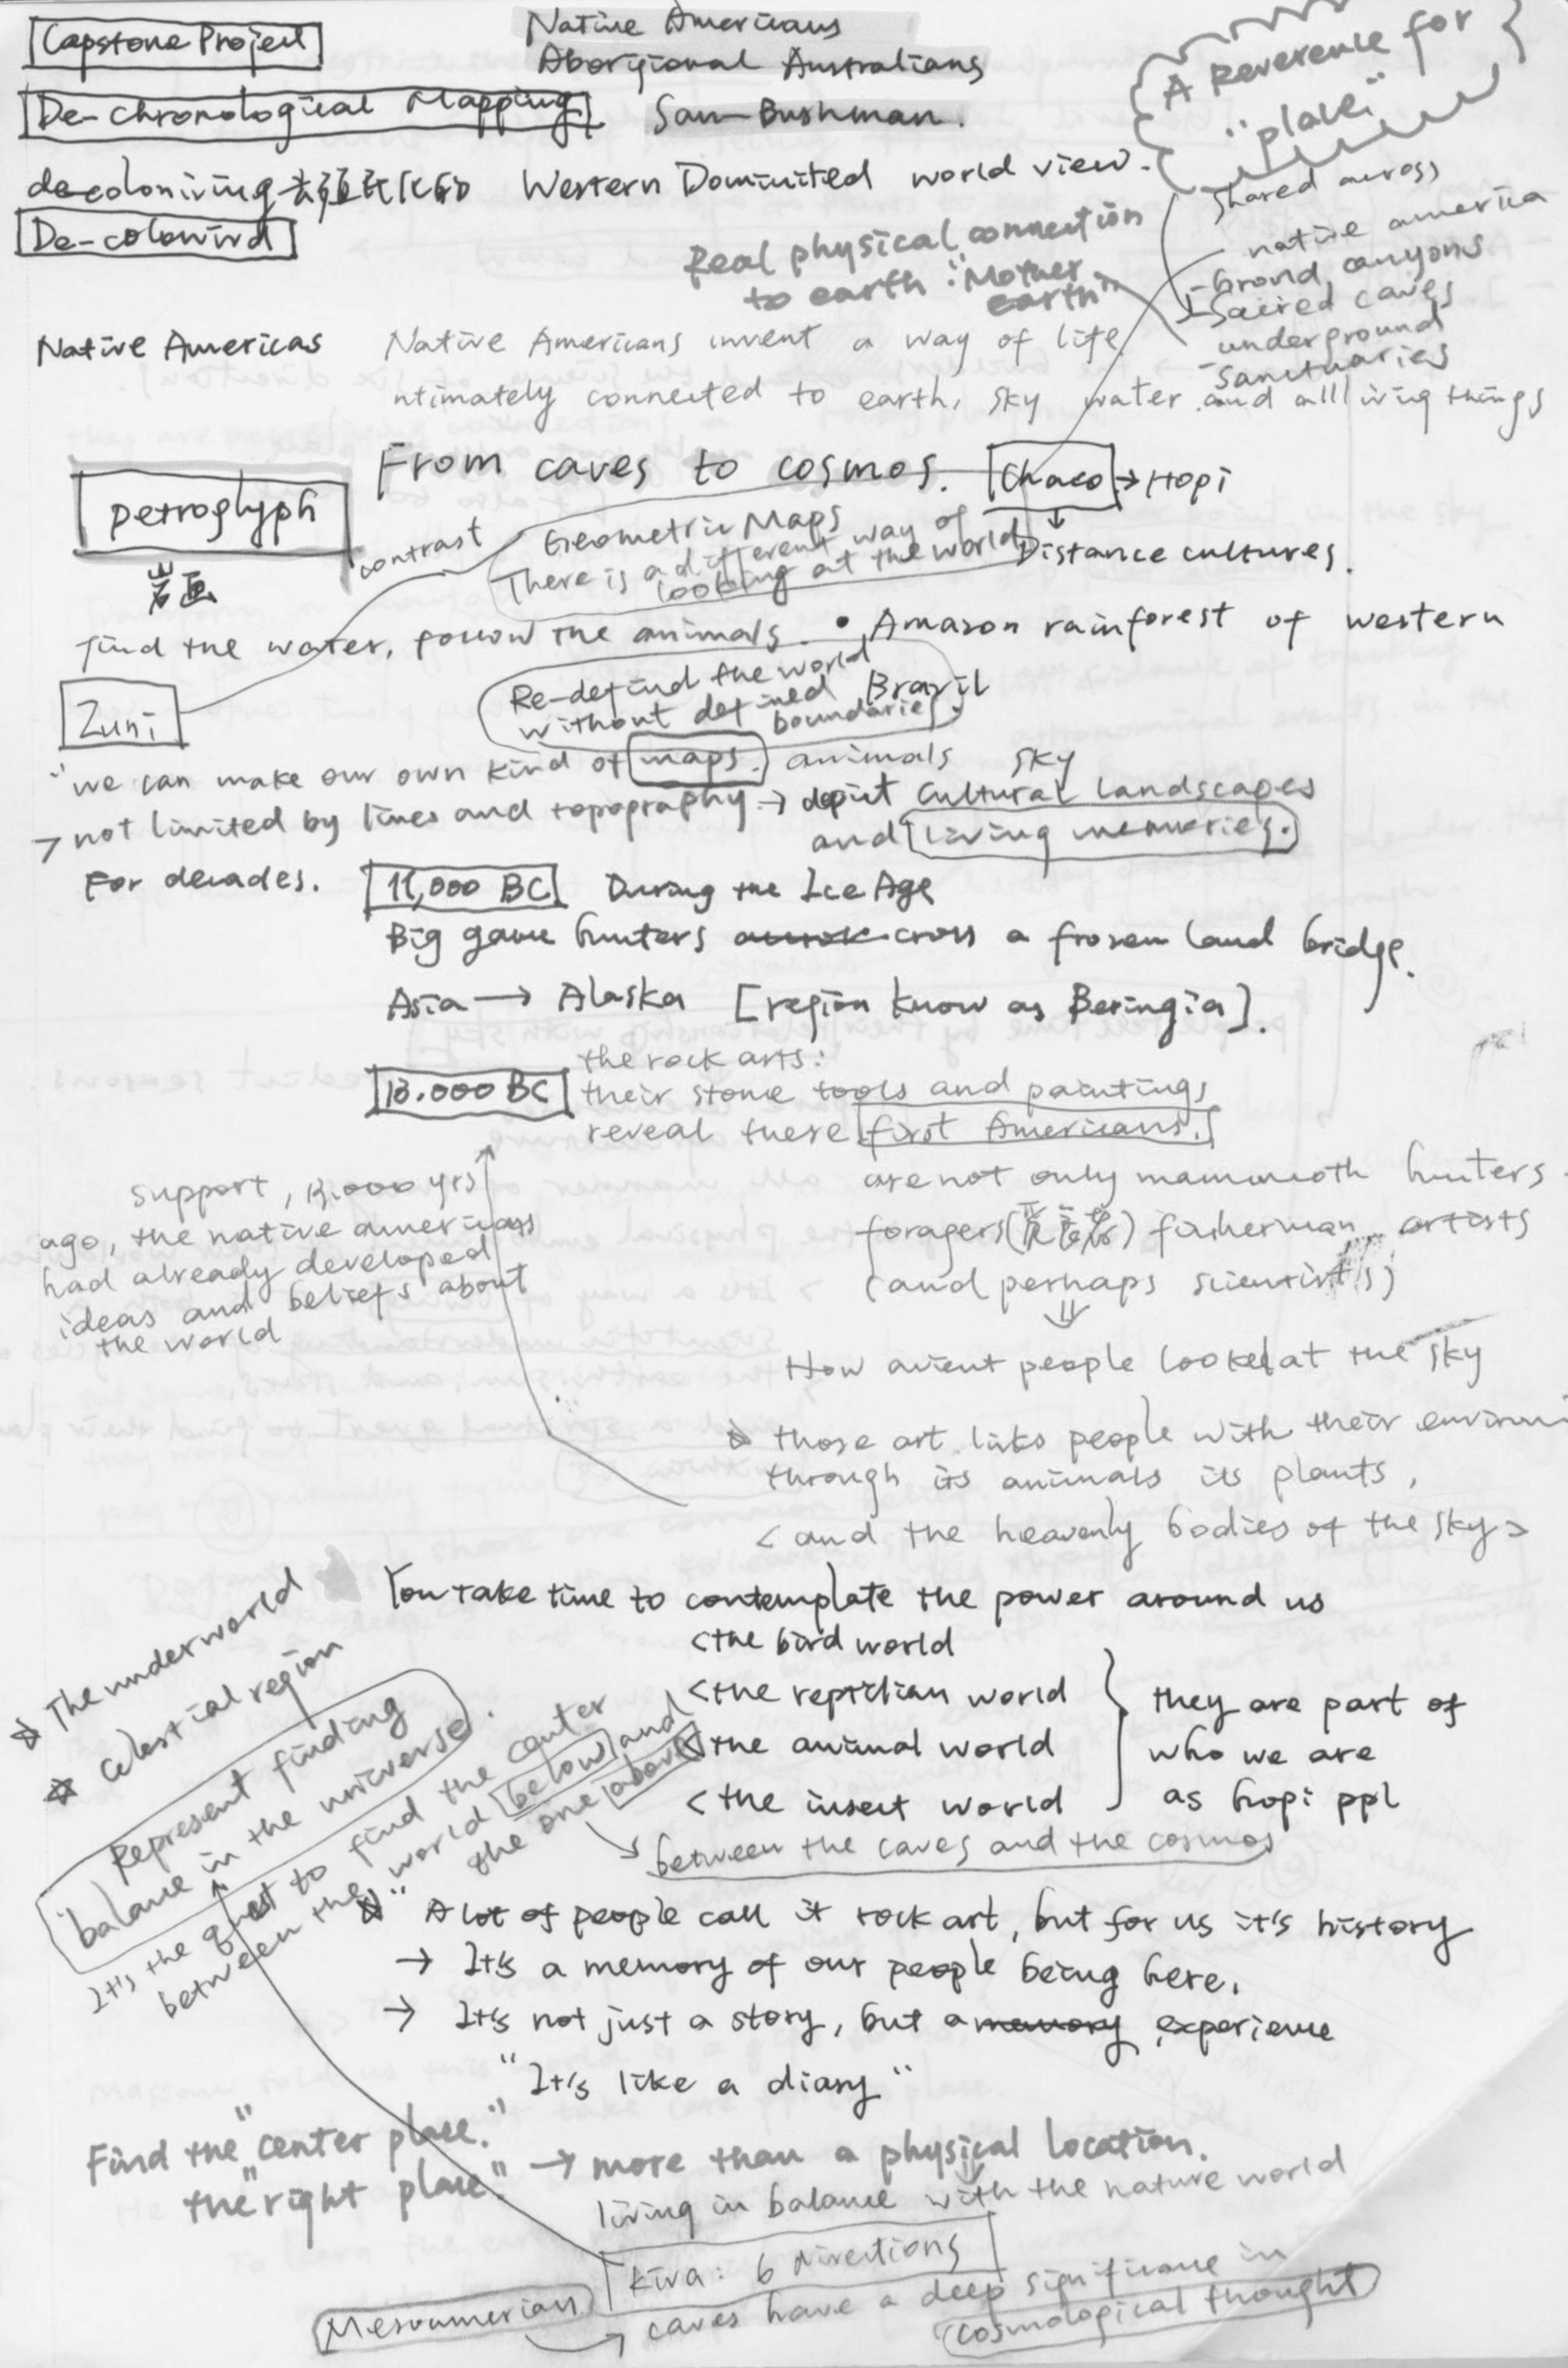 Capstone Project
Native Americans
Aborigional Australians
De-Chronological Mapping
San Bushman.
A Reverence for
"place"
decolonizing 去殖民化的 Western Dominited world view.
De-colonized
shared across
native america
- Grand canyons
- Sacred caves
underground
- sanctuaries
Real physical connection
to earth "Mother
earth"
Native Americas
Native Americans invent a way of life
ntimately connected to earth, sky water and all living things
From caves to cosmos.
Chaco → Hopi
Distance cultures.
petroglyph
岩画
contrast
Geometric Maps
There is a different way of
looking at the world
find the water, follow the animals.
• Amazon rainforest of western
Brazil
Re-defind the world
without defined
boundaries.
Zuni
"we can make our own kind of maps. animals sky
→ not limited by lines and topography → depict Cultural landscapes
and living memories.
For decades.
11,000 BC During the Ice Age
Big game hunters cross a frozen land bridge.
Asia → Alaska [region know as Beringia].
13.000 BC
the rock arts:
their stone tools and paintings
reveal these first Americans.
are not only mammoth hunters
foragers( ) fisherman artists
(and perhaps scientists)
support, 13.000 yrs
ago, the native americans
had already developed
ideas and beliefs about
the world
How acient people looked at the sky
☆ those art links people with their environ
through its animals its plants,
< and the heavenly bodies of the sky >
You take time to contemplate the power around us
<the bird world
<the reptilian world
<the animal world
<the insect world
they are part of
who we are
as hopi ppl
between the caves and the cosmos
☆ The underworld
☆ celestial region
Represent finding
balance in the universe.
It's the quest to find the center
between the world below and
the one above
☆ "A lot of people call it rock art, but for us it's history
→ It's a memory of our people being here.
→ It's not just a story, but a memory experience
"It's like a diary"
Find the "center place."
the "right place." → more than a physical location.
living in balance with the nature world
Kiva: 6 directions
Mesoamerian
caves have a deep significance in
cosmological thought